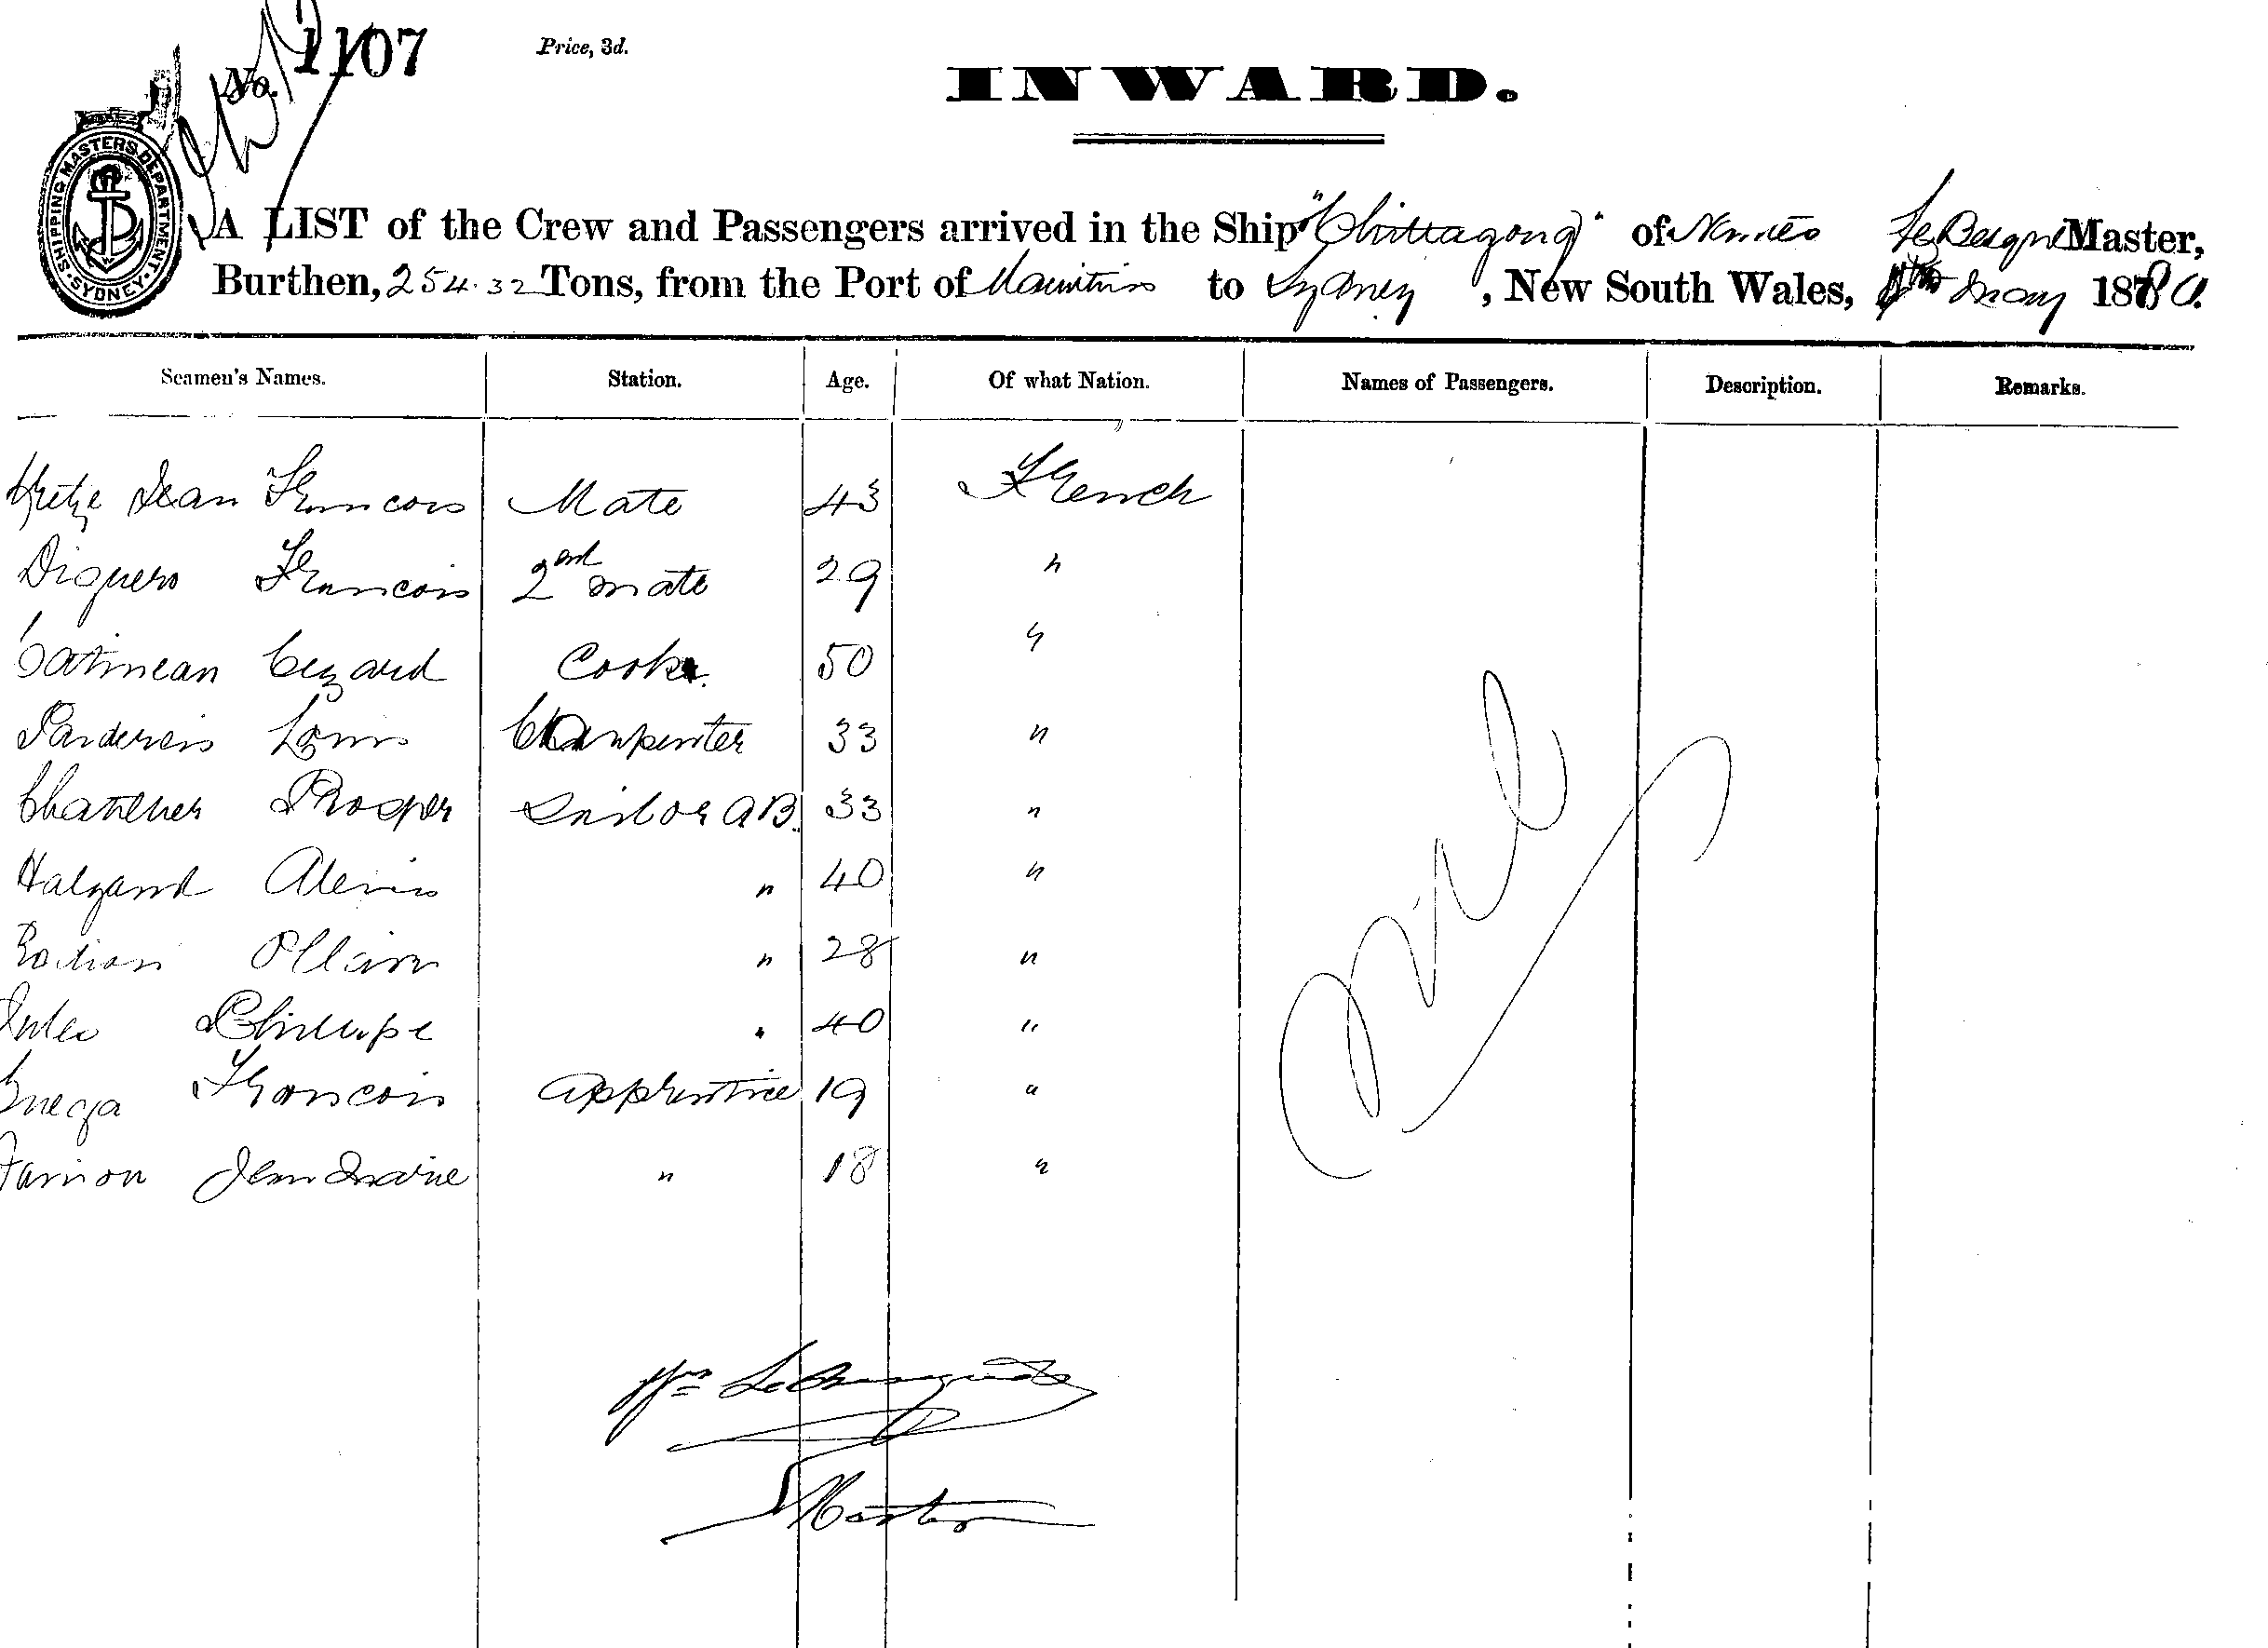 No. 1107
Price, 3d.
INWARD.
SHIPPING MASTERS DEPARTMENT. SYDNEY.
A LIST of the Crew and Passengers arrived in the Ship "Chittagong" of Nantes Master,
Burthen, 254.32 Tons, from the Port of Mauritius to Sydney, New South Wales, May 1880.
Seamen's Names. Station. Age. Of what Nation. Names of Passengers. Description. Remarks.
Jean Francois Mate 43 French
Diguero Francois 2nd mate 29 "
Catinean Cezard Cook 50 "
Louis Carpenter 33 "
Prosper Sailor AB. 33 "
Halgand Alexis " 40 "
" 28 "
Jules Phillipe " 40 "
Francois Apprentice 19 "
Jean Marie " 18 "
Nil
Master